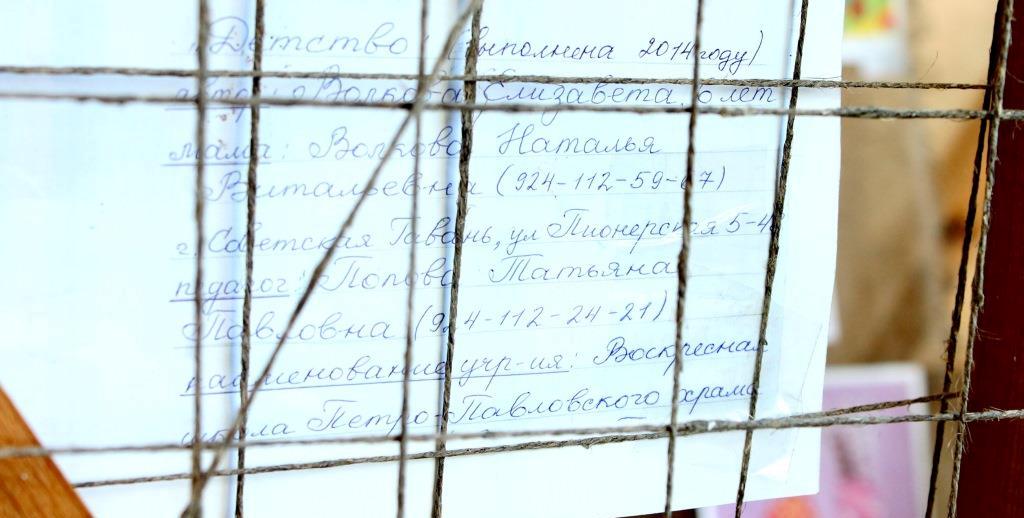 "Детство" (выполнена 2014 году)
автор: Волкова Елизавета, 6 лет
мама: Волкова Наталья
Витальевна (924-112-59-67)
г. Советская Гавань, ул Пионерская 5-4
педагог: Попова Татьяна
Павловна (924-112-24-21)
наименование учр-ия: Воскресная
школа Петро-Павловского храма